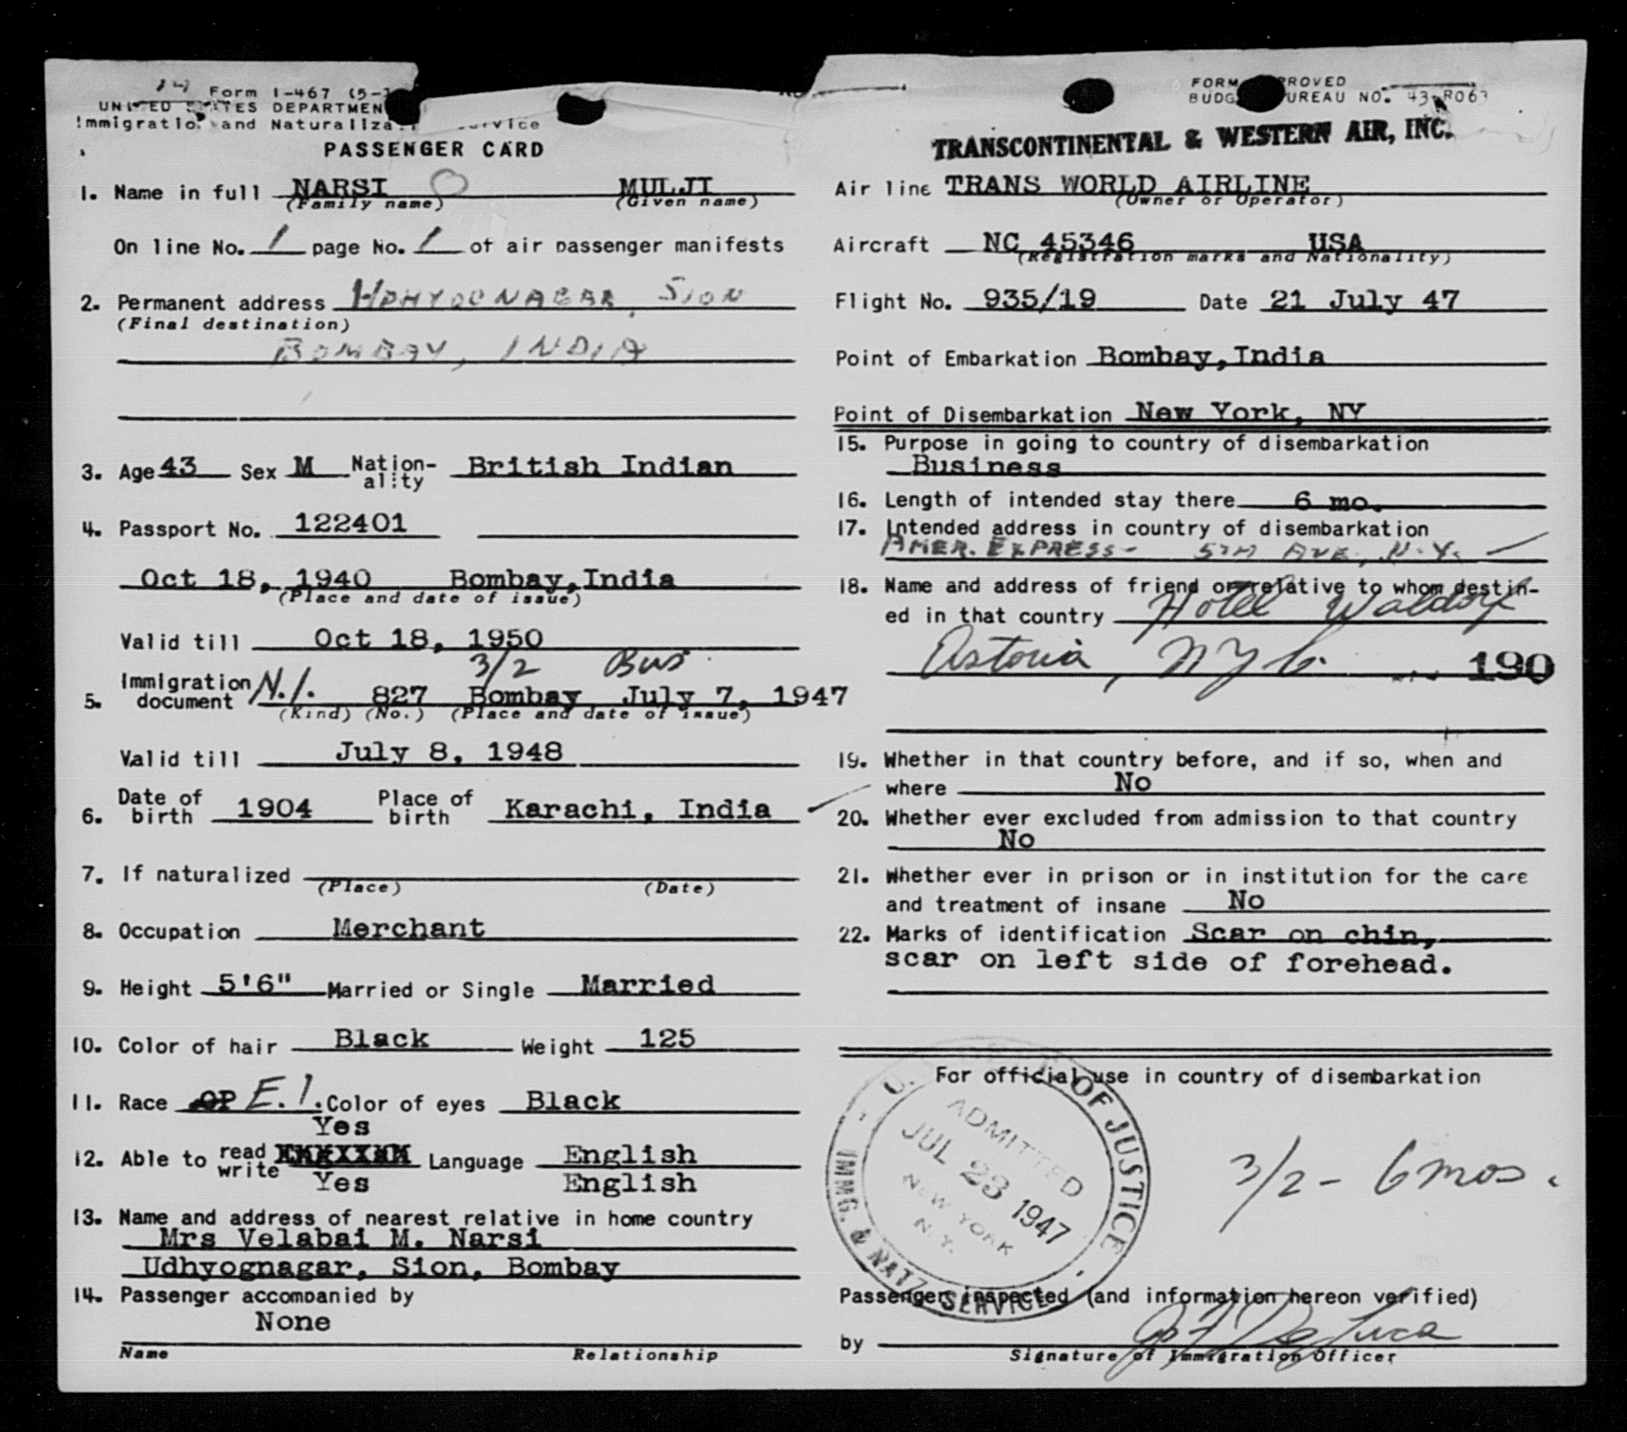 Form I-467 (5-
UNITED STATES DEPARTMEN
Immigration and Naturaliza Service
PASSENGER CARD
1. Name in full NARSI MULJI
(Family name) (Given name)
On line No. 1 page No. 1 of air passenger manifests
2. Permanent address SION
(Final destination)
BOMBAY, INDIA
3. Age 43 Sex M Nation-ality British Indian
4. Passport No. 122401
Oct 18, 1940 Bombay, India
(Place and date of issue)
Valid till Oct 18, 1950
3/2 Bus.
5. Immigration document N.I. 827 Bombay July 7, 1947
(Kind) (No.) (Place and date of issue)
Valid till July 8, 1948
6. Date of birth 1904 Place of birth Karachi, India
7. If naturalized
(Place) (Date)
8. Occupation Merchant
9. Height 5'6" Married or Single Married
10. Color of hair Black Weight 125
11. Race E.I. Color of eyes Black
Yes
12. Able to read write Language English
Yes English
13. Name and address of nearest relative in home country
Mrs Velabai M. Narsi
Udhyognagar, Sion, Bombay
14. Passenger accompanied by
None
Name Relationship
FORM APPROVED
BUDGET BUREAU NO. 43-R063
TRANSCONTINENTAL & WESTERN AIR, INC.
Air line TRANS WORLD AIRLINE
(Owner or Operator)
Aircraft NC 45346 USA
(Registration marks and Nationality)
Flight No. 935/19 Date 21 July 47
Point of Embarkation Bombay, India
Point of Disembarkation New York, NY
15. Purpose in going to country of disembarkation
Business
16. Length of intended stay there 6 mo.
17. Intended address in country of disembarkation
AMER. EXPRESS - 5TH AVE, N.Y.
18. Name and address of friend or relative to whom destin-
ed in that country Hotel Waldorf
Astoria, NYC. 190
19. Whether in that country before, and if so, when and
where No
20. Whether ever excluded from admission to that country
No
21. Whether ever in prison or in institution for the care
and treatment of insane No
22. Marks of identification Scar on chin,
scar on left side of forehead.
For official use in country of disembarkation
U. S. DEPT. OF JUSTICE
ADMITTED
JUL 23 1947
NEW YORK
N.Y.
IMMG. & NATZ. SERVICE
3/2 - 6 mos.
Passenger inspected (and information hereon verified)
by
Signature of Immigration Officer